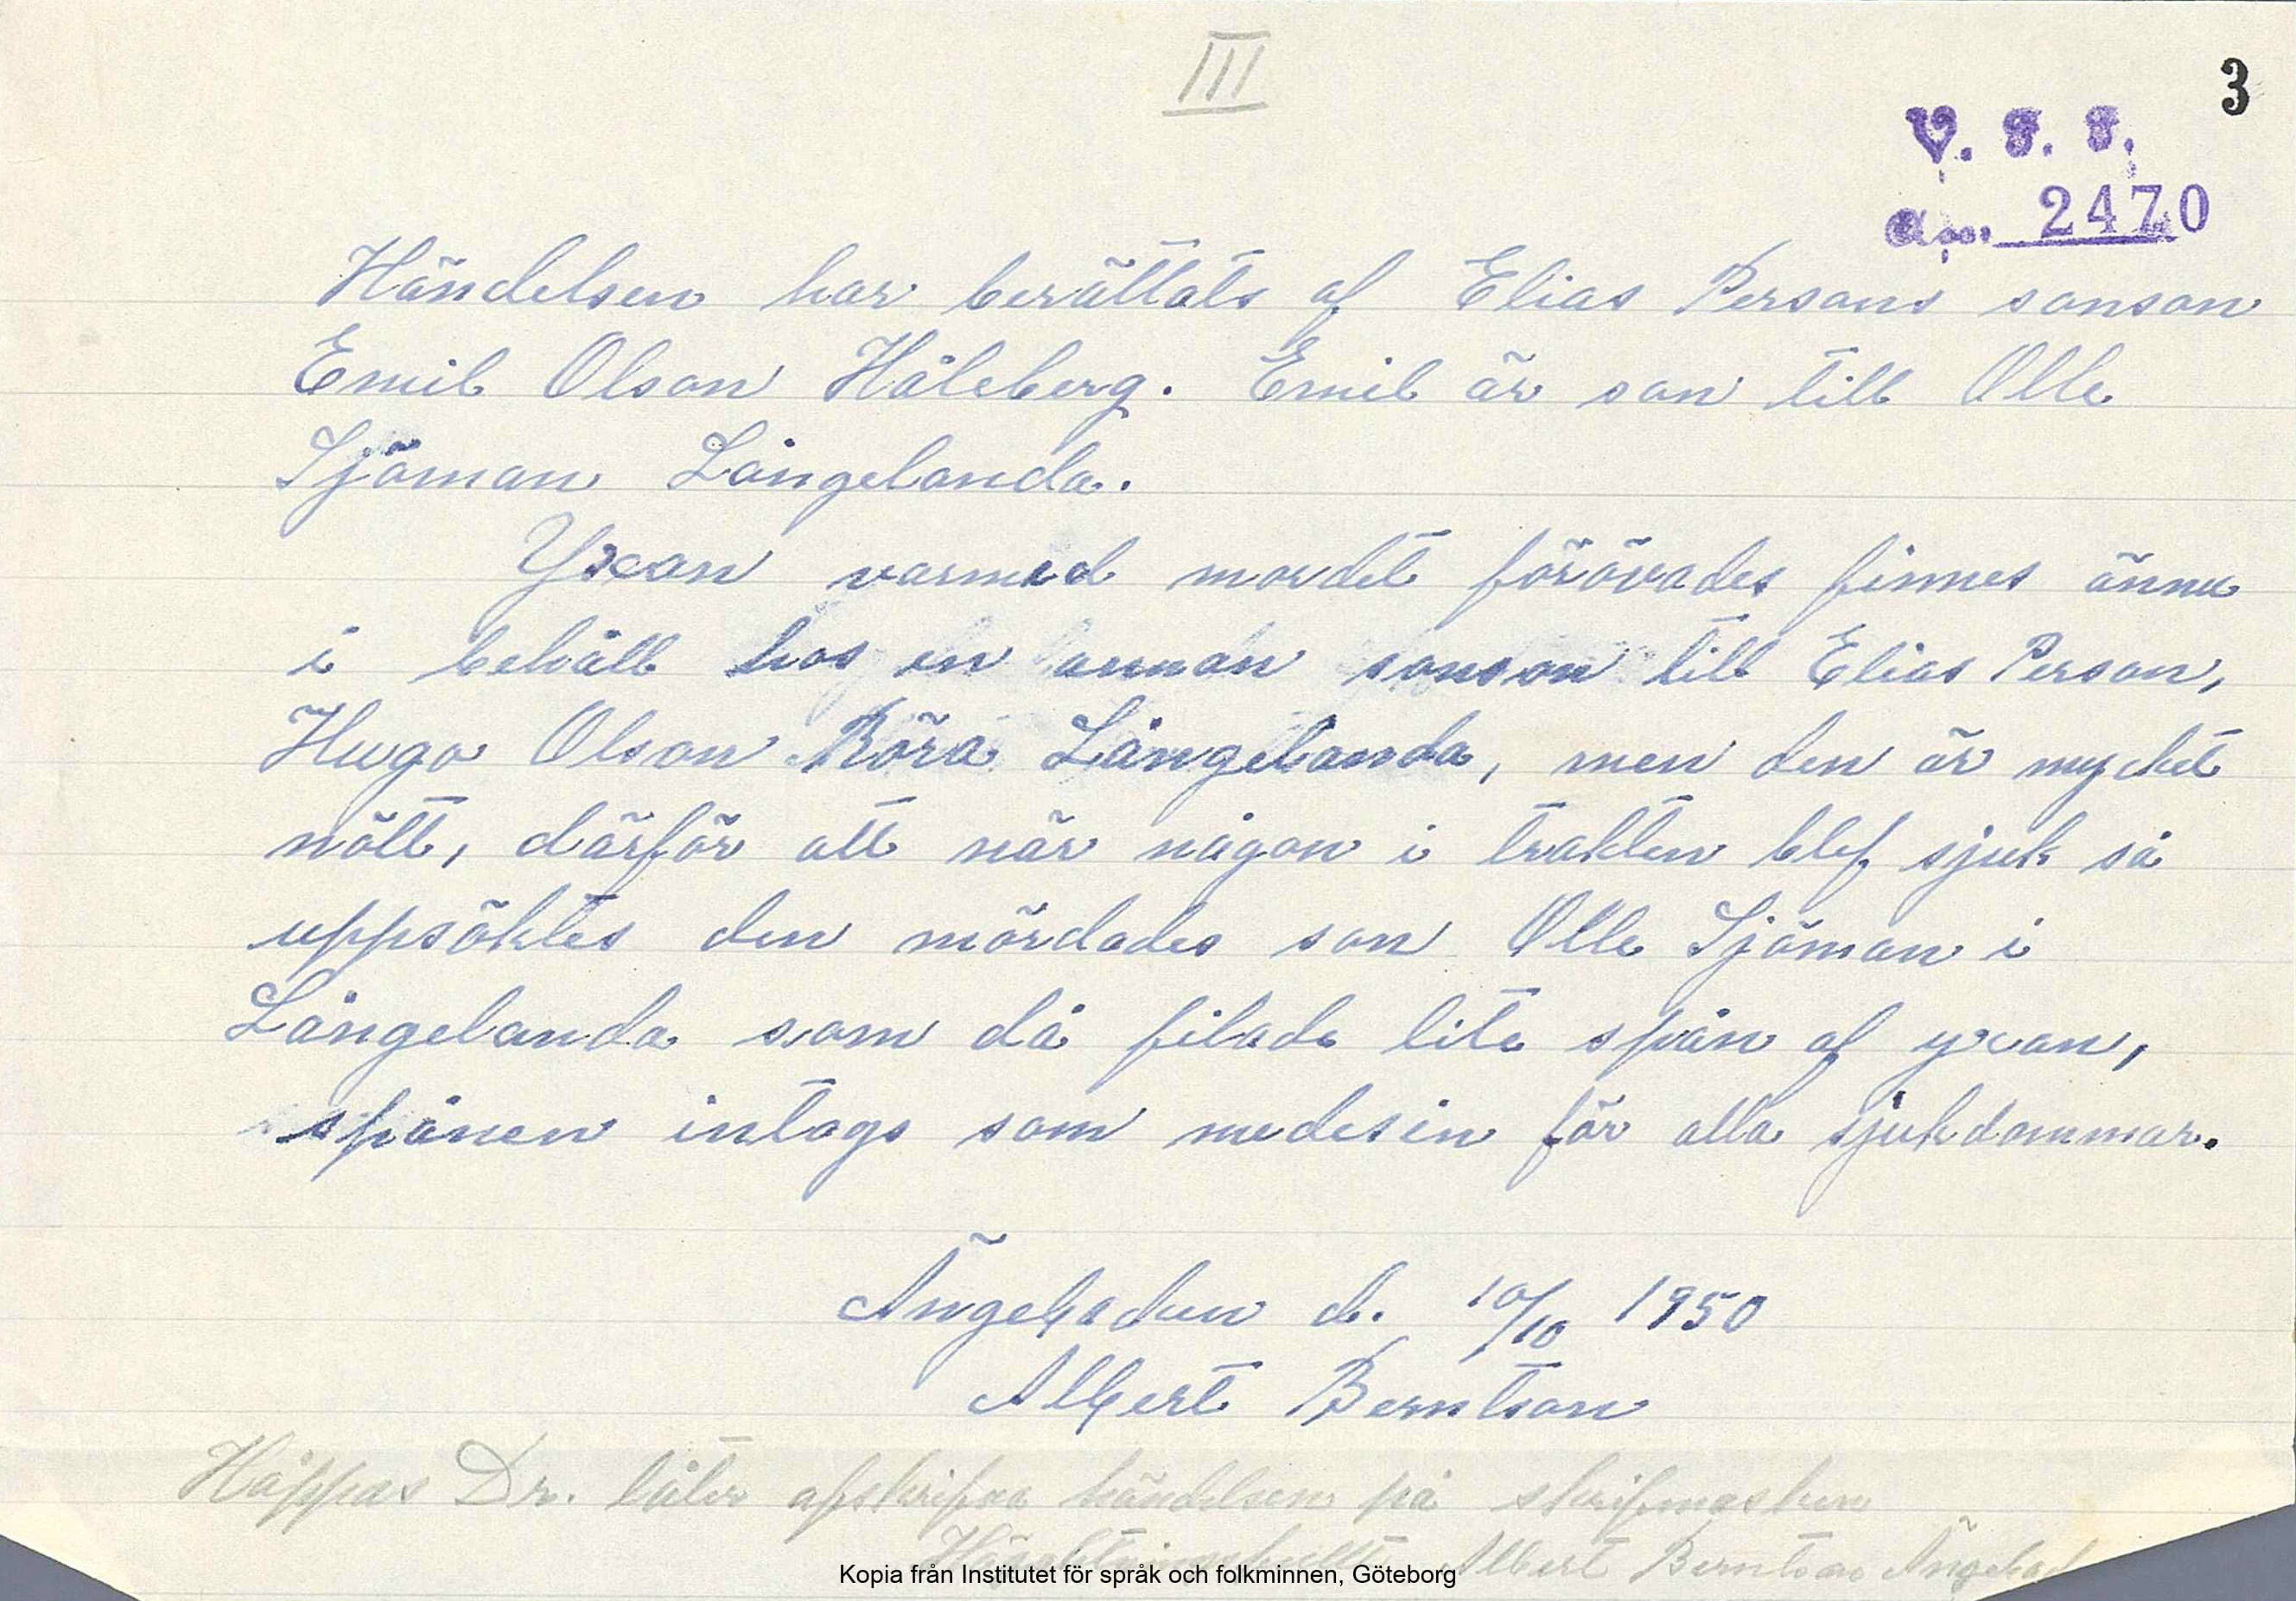 III
3
V. F. F.
Acc. 2470
Händelsen har berättats af Elias Persons sonson
Emil Olson Håleberg. Emil är son till Olle
Sjöman Långelanda.
Yxan varmed mordet förövades finnes ännu
i behåll hos en annan sonson till Elias Person,
Hugo Olson Röra Långelanda, men den är mycket
nött, därför att när någon i trakten blef sjuk så
uppsöktes den mördades son Olle Sjöman i
Långelanda som då filade lite spån af yxan,
spånen intogs som medesin för alla sjukdommar.
Ängebacken d. 10/10 1950
Albert Berntson
Håppas Dr. låter afskrifva händelsen på skrifmaskin
Albert Berntson
Kopia från Institutet för språk och folkminnen, Göteborg